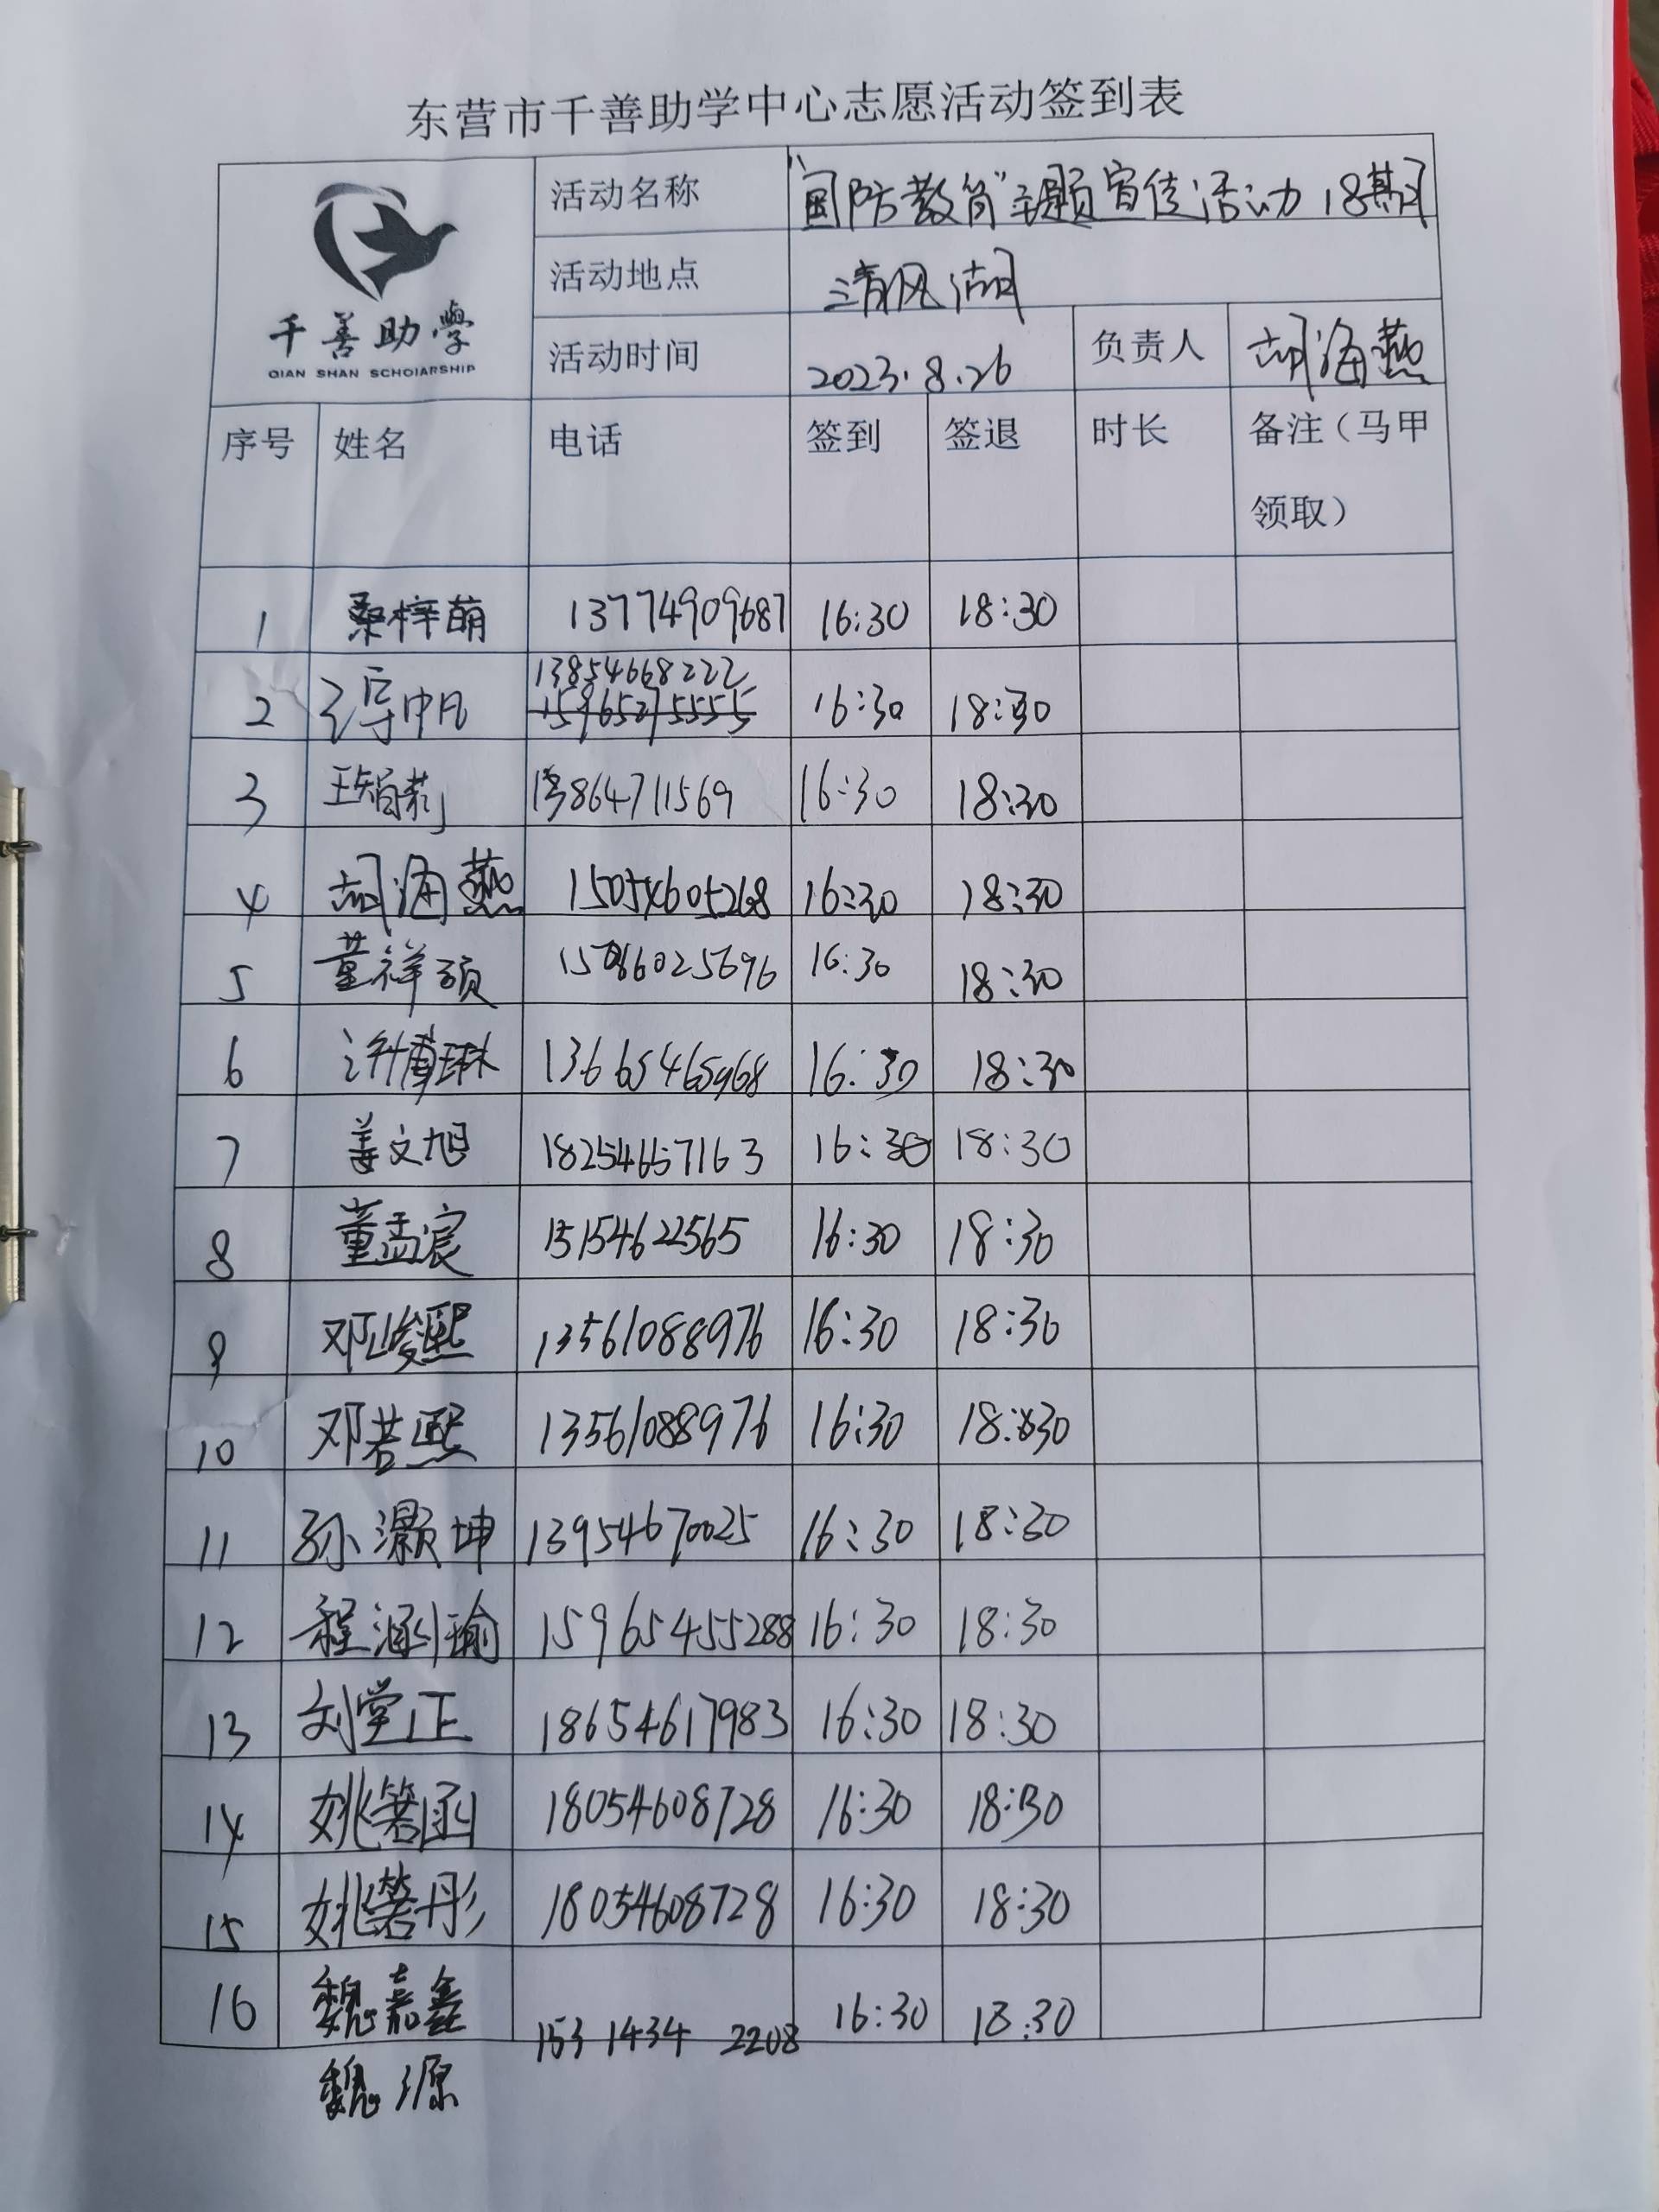 东营市千善助学中心志愿活动签到表
千善助學
QIAN SHAN SCHOIARSHIP
活动名称 "国防教育"主题宣传活动 18期
活动地点 清风湖
活动时间 2023.8.26 负责人 胡海燕
序号 姓名 电话 签到 签退 时长 备注（马甲
领取）
1 桑梓萌 13774909687 16:30 18:30
13854668222
2 16:30 18:30
3 13864711569 16:30 18:30
4 胡海燕 15054605268 16:30 18:30
5 董祥硕 16:30 18:30
6 13665465968 16:30 18:30
7 姜文旭 18254657163 16:30 18:30
8 董孟宸 15154622565 16:30 18:30
9 邓峻熙 13561088976 16:30 18:30
10 邓若熙 13561088976 16:30 18:30
11 孙灏坤 13954670025 16:30 18:30
12 程涵瑜 15965455288 16:30 18:30
13 刘堂正 18654617983 16:30 18:30
14 姚箬函 18054608728 16:30 18:30
15 姚箬彤 18054608728 16:30 18:30
16 魏嘉鑫 153 1434 2208 16:30 18:30
魏源